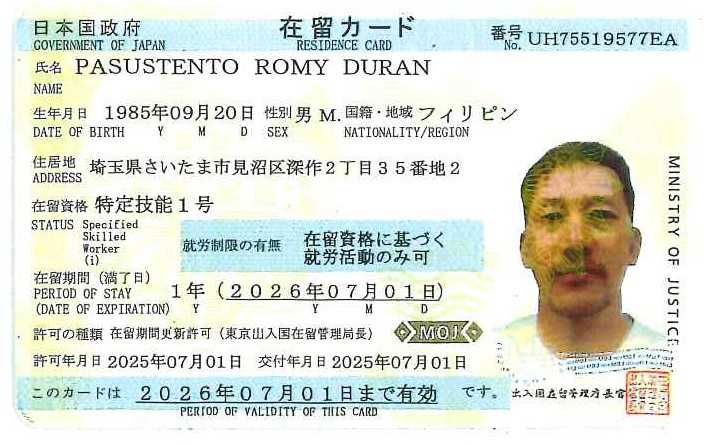 日本国政府 在留カード 番号 UH75519577EA
GOVERNMENT OF JAPAN RESIDENCE CARD No.
氏名 PASUSTENTO ROMY DURAN
NAME
生年月日 1985年09月20日 性別 男 M. 国籍・地域 フィリピン
DATE OF BIRTH Y M D SEX NATIONALITY/REGION
住居地 埼玉県さいたま市見沼区深作2丁目35番地2
ADDRESS
在留資格 特定技能1号
STATUS Specified
Skilled
Worker
(i)
就労制限の有無 在留資格に基づく
就労活動のみ可
在留期間 (満了日)
PERIOD OF STAY 1年 (2026年07月01日)
(DATE OF EXPIRATION) Y Y M D
許可の種類 在留期間更新許可 (東京出入国在留管理局長) MOJ
許可年月日 2025年07月01日 交付年月日 2025年07月01日
このカードは 2026年07月01日まで有効 です。
PERIOD OF VALIDITY OF THIS CARD
MINISTRY OF JUSTICE
出入国在留管理庁長官